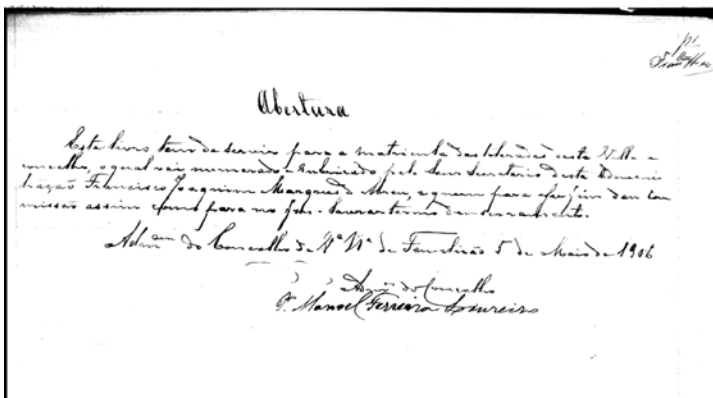 Abertura
Este livro tem de servir para a matricula das toleradas nesta Villa e
concelho, o qual vai numerado e rubricado pelo Snr. Secretario desta Adminis
tração Francisco Joaquim Marques d'Abreu, a quem para esse fim dou com
missão assim como para no fim lavrar termo de encerramento.
Admᵃᵐ do Concelho de Vᵃ Nᵃ de Famalicão 5 de Maio de 1906
do Concelho
Pᵉ Manoel Ferreira Loureiro